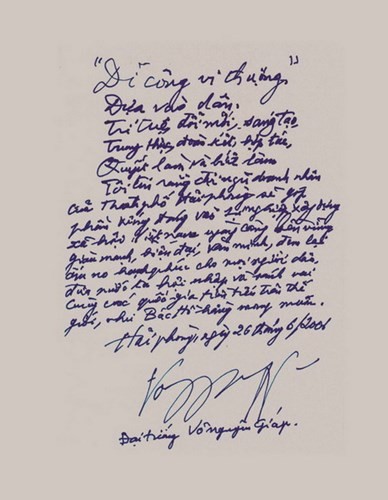 "Dĩ công vi thượng"
Dựa vào dân.
Trí tuệ, đổi mới, sáng tạo
Trung thực, đoàn kết, hợp tác,
Quyết làm và biết làm
Tôi tin rằng đội ngũ doanh nhân
của Thành phố Hải phòng sẽ góp
phần xứng đáng vào sự nghiệp xây dựng
xã hội ở Việt nam ngày càng bền vững
giàu mạnh, hiện đại, văn minh, đem lại
ấm no hạnh phúc cho mọi người dân,
đưa nước ta hội nhập và sánh vai
cùng các quốc gia tiên tiến trên thế
giới, như Bác Hồ hằng mong muốn.
Hải phòng, ngày 26 tháng 6/2006
Đại tướng Võ nguyên Giáp.